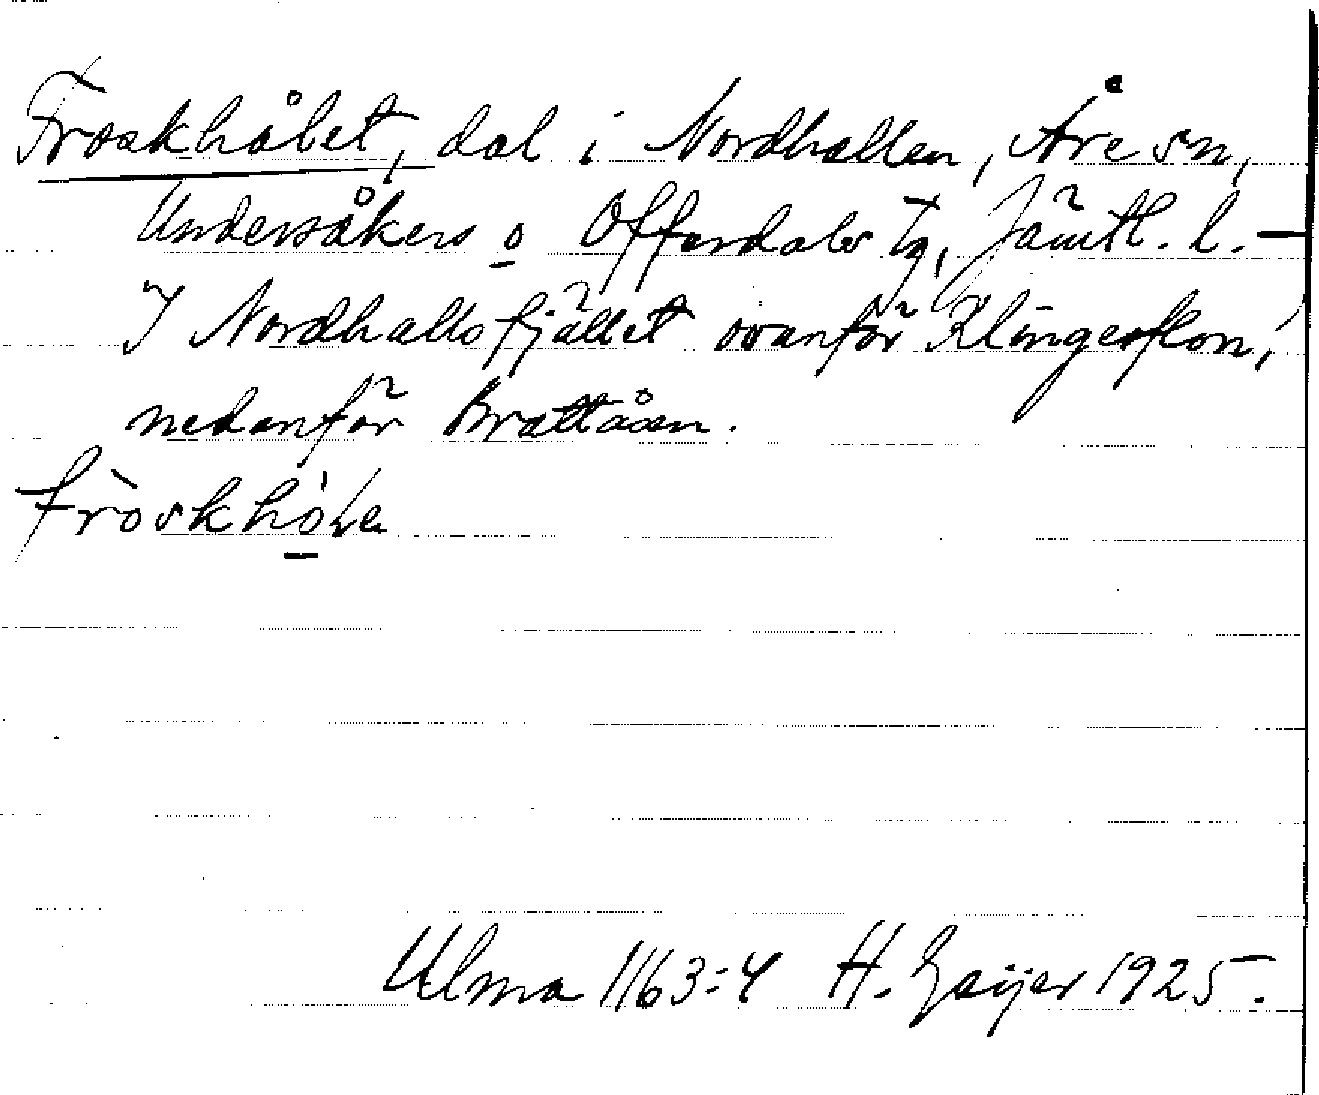 Froskhålet, dal i Nordhallen, Åre sn,
Undersåkers o Offerdals tg, Jämtl. l. —
I Nordhallsfjället ovanför Klingerflon,
nedanför Brattåsen.
Ulma 1163:4 H. Geijer 1925.